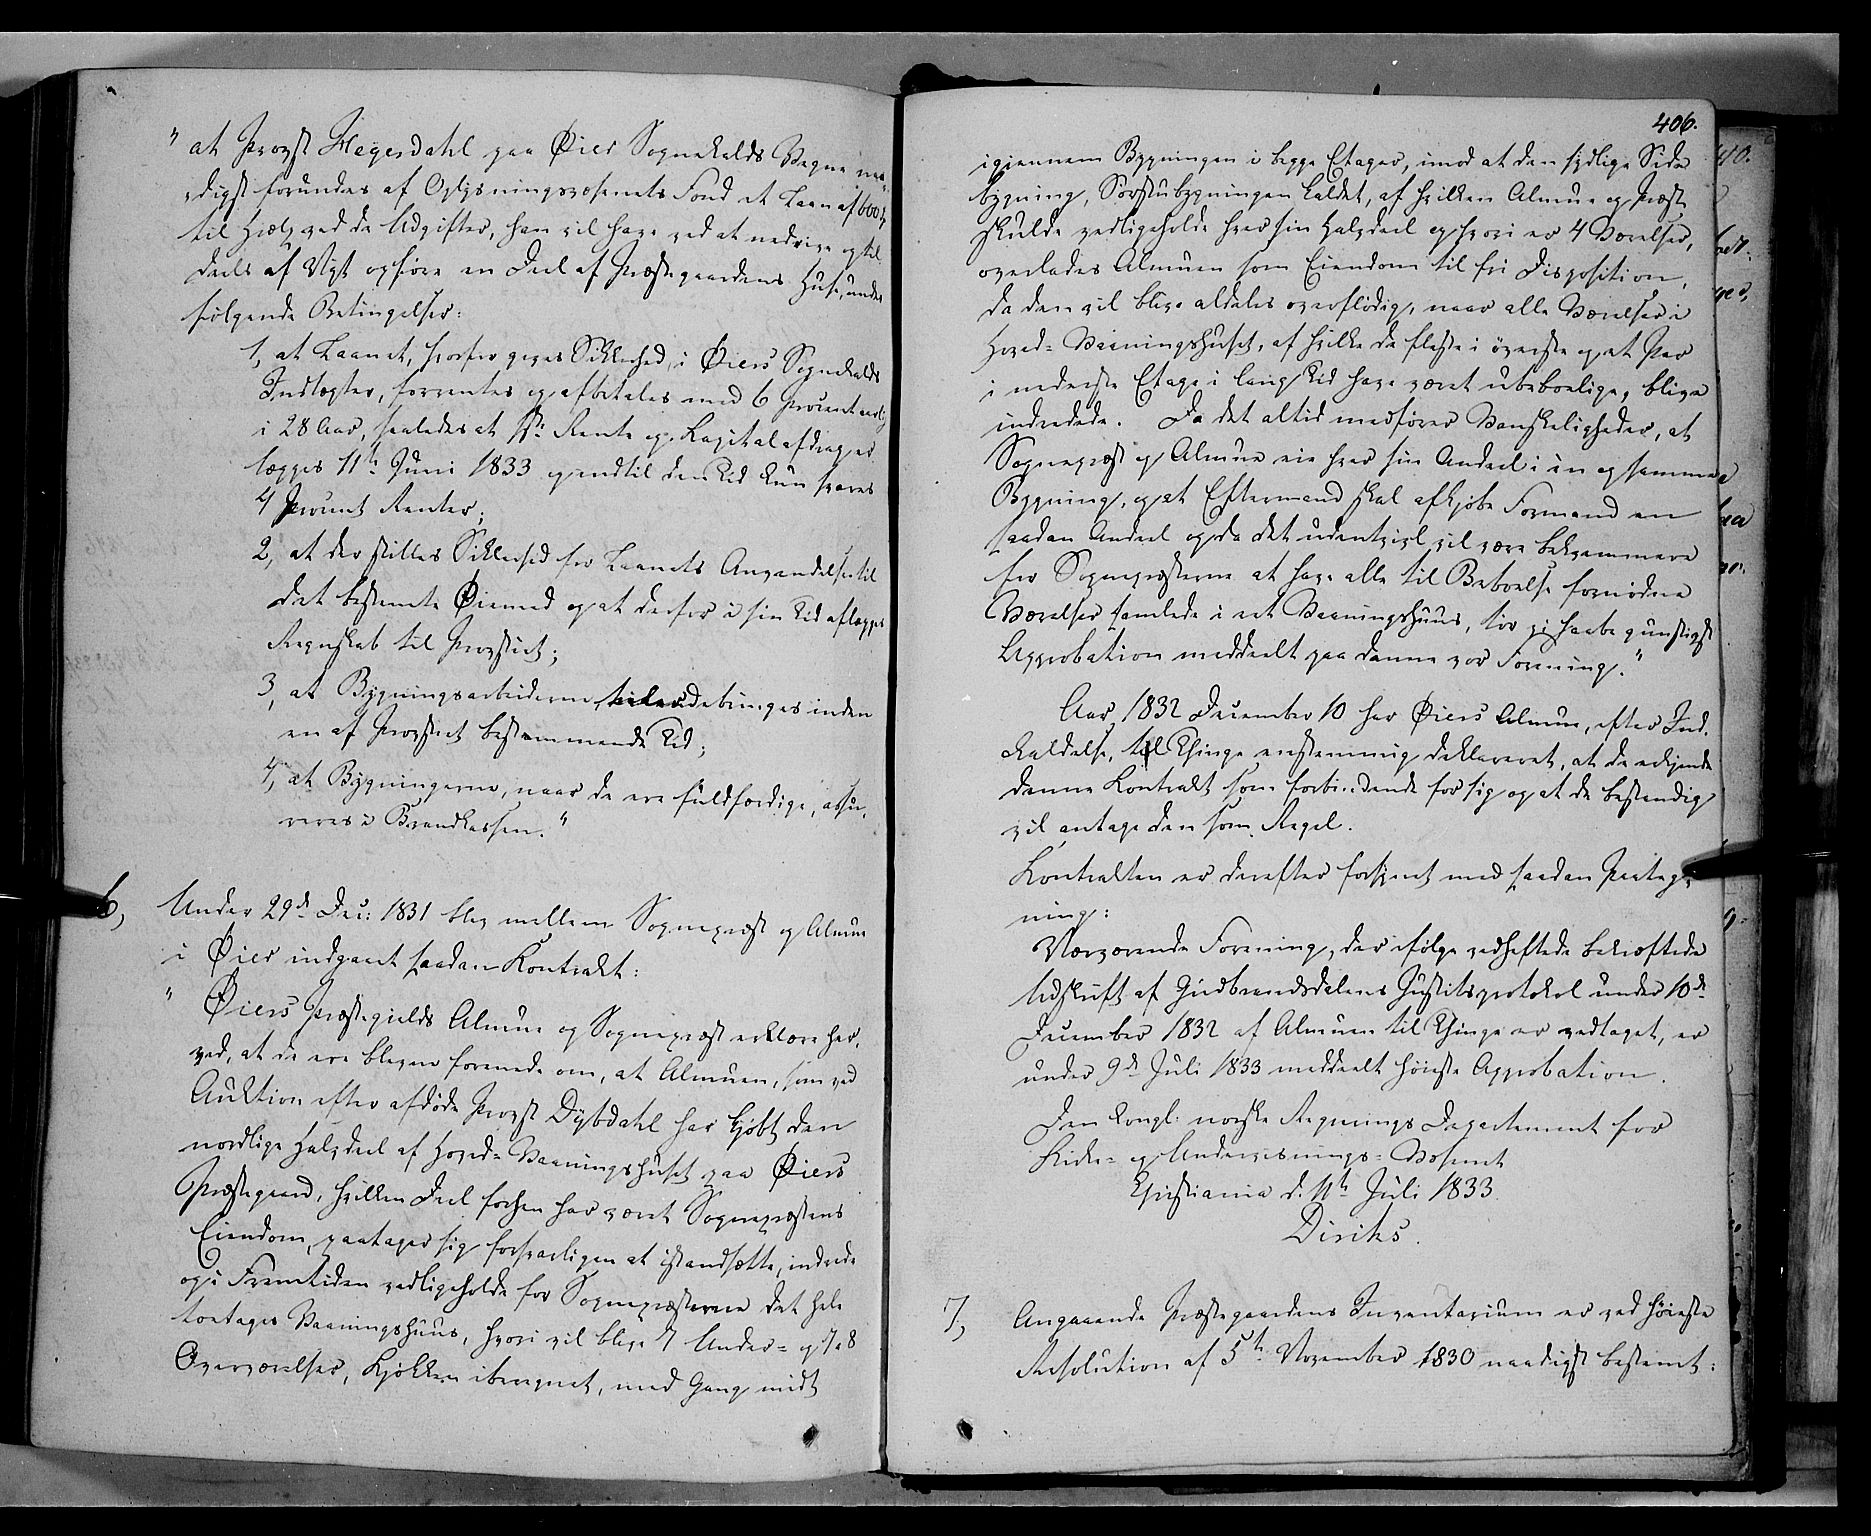 " at Provst Hegerdahl paa Øier Sognekalds Vegne naa-
digst forundes af Oplysningsvæsenets Fond et Laan af 600
til Hjelp ved de Udgifter, han vil have ved at nedrive og til
deels af Nyt opføre en Deel af Præstegaardens Huse, under
følgende Betingelser:
1, at Laanet, hvorfor gives Sikkerhed, i Øiers Sognekalds
Indtægter, forrentes og afbetales med 6 Procent aarlig
i 28 Aar, saaledes at 1ste Rente og Kapitalafdrag er-
lægges 11te Juni 1833 og indtil den Tid kun svares
4 Procent Renter;
2, at der stilles Sikkerhed for Laanets Anvendelse til
det bestemte Øiemed og at derfor i sin Tid aflægges
Regnskab til Provstiet;
3, at Bygningsarbeiderne tilendebringes inden
en af Provstiet bestemmende Tid;
4, at Bygningerne, naar de ere fuldfærdige, assu-
reres i Brandkassen."
6, Under 29de Dec: 1831 blev mellem Sognepræst og Almue
i Øier indgaaet saadan Kontrakt:
" Øiers Præstegjelds Almue og Sognepræst erklære her-
ved, at de ere blevne forenede om, at Almuen, som ved
Auktion efter afdøde Provst Dybdahl har kjøbt den
nordlige Halvdeel af Hoved-Vaaningshuset paa Øiers
Præstegaard, hvilken Deel forhen har været Sognepræstens
Eiendom, paatager sig forsvarligen at istandsætte, indrede
og i Fremtiden vedligeholde for Sognepræsterne det hele
toetages Vaaningshuus, hvori vil blive 7 Under- og 7 a 8
Overværelser, Kjøkken iberegnet, med Gang midt
406.
igjennem Bygningen i begge Etager, imod at den sydlige Side
bygning, Borgstubygningen kaldet, af hvilken Almue og Præst
skulde vedligeholde hver sin Halvdeel og hvori er 4 Værelser,
overlades Almuen som Eiendom til fri Disposition,
da den vil blive aldeles overflødig, naar alle Værelser i
Hoved-Vaaningshuset, af hvilke de fleste i øverste og et Par
i nederste Etage i lang Tid have været ubeboelige, blive
indredede. Da det altid medfører Vanskeligheder, at
Sognepræst og Almue eie hver sin Andeel i en og samme
Bygning, og at Eftermand skal afkjøbe Formand en
saadan Andeel og da det udentvivl vil være bekvemmere
for Sognepræsterne at have alle til Beboelse fornødne
Værelser samlede i eet Vaaningshuus, tør vi haabe gunstigst
Approbation meddeelt paa denne vor Forening."
Aar 1832 December 10 har Øiers Almue, efter Ind-
kaldelse, til Thinge enstemmig deklareret, at de erkjende
denne Kontrakt som forbindende for sig og at de bestandig
vil antage den som Regel.
Kontrakten er derefter forsynet med saadan Paateg-
ning:
Nærværende Forening, der ifølge vedheftede bekræftede
Udskrift af Gudbrandsdalens Justitsprotokol under 10de
December 1832 af Almuen til Thinge er vedtaget, er
under 9de Juli 1833 meddeelt høieste Approbation.
Den kongl. norske Regjerings Departement for
Kirke- og Underviisnings-Væsenet
Christiania d. 11te Juli 1833
Diriks.
7, Angaaende Præstegaardens Inventarium er ved høieste
Resolution af 5te November 1830 naadigst bestemt: